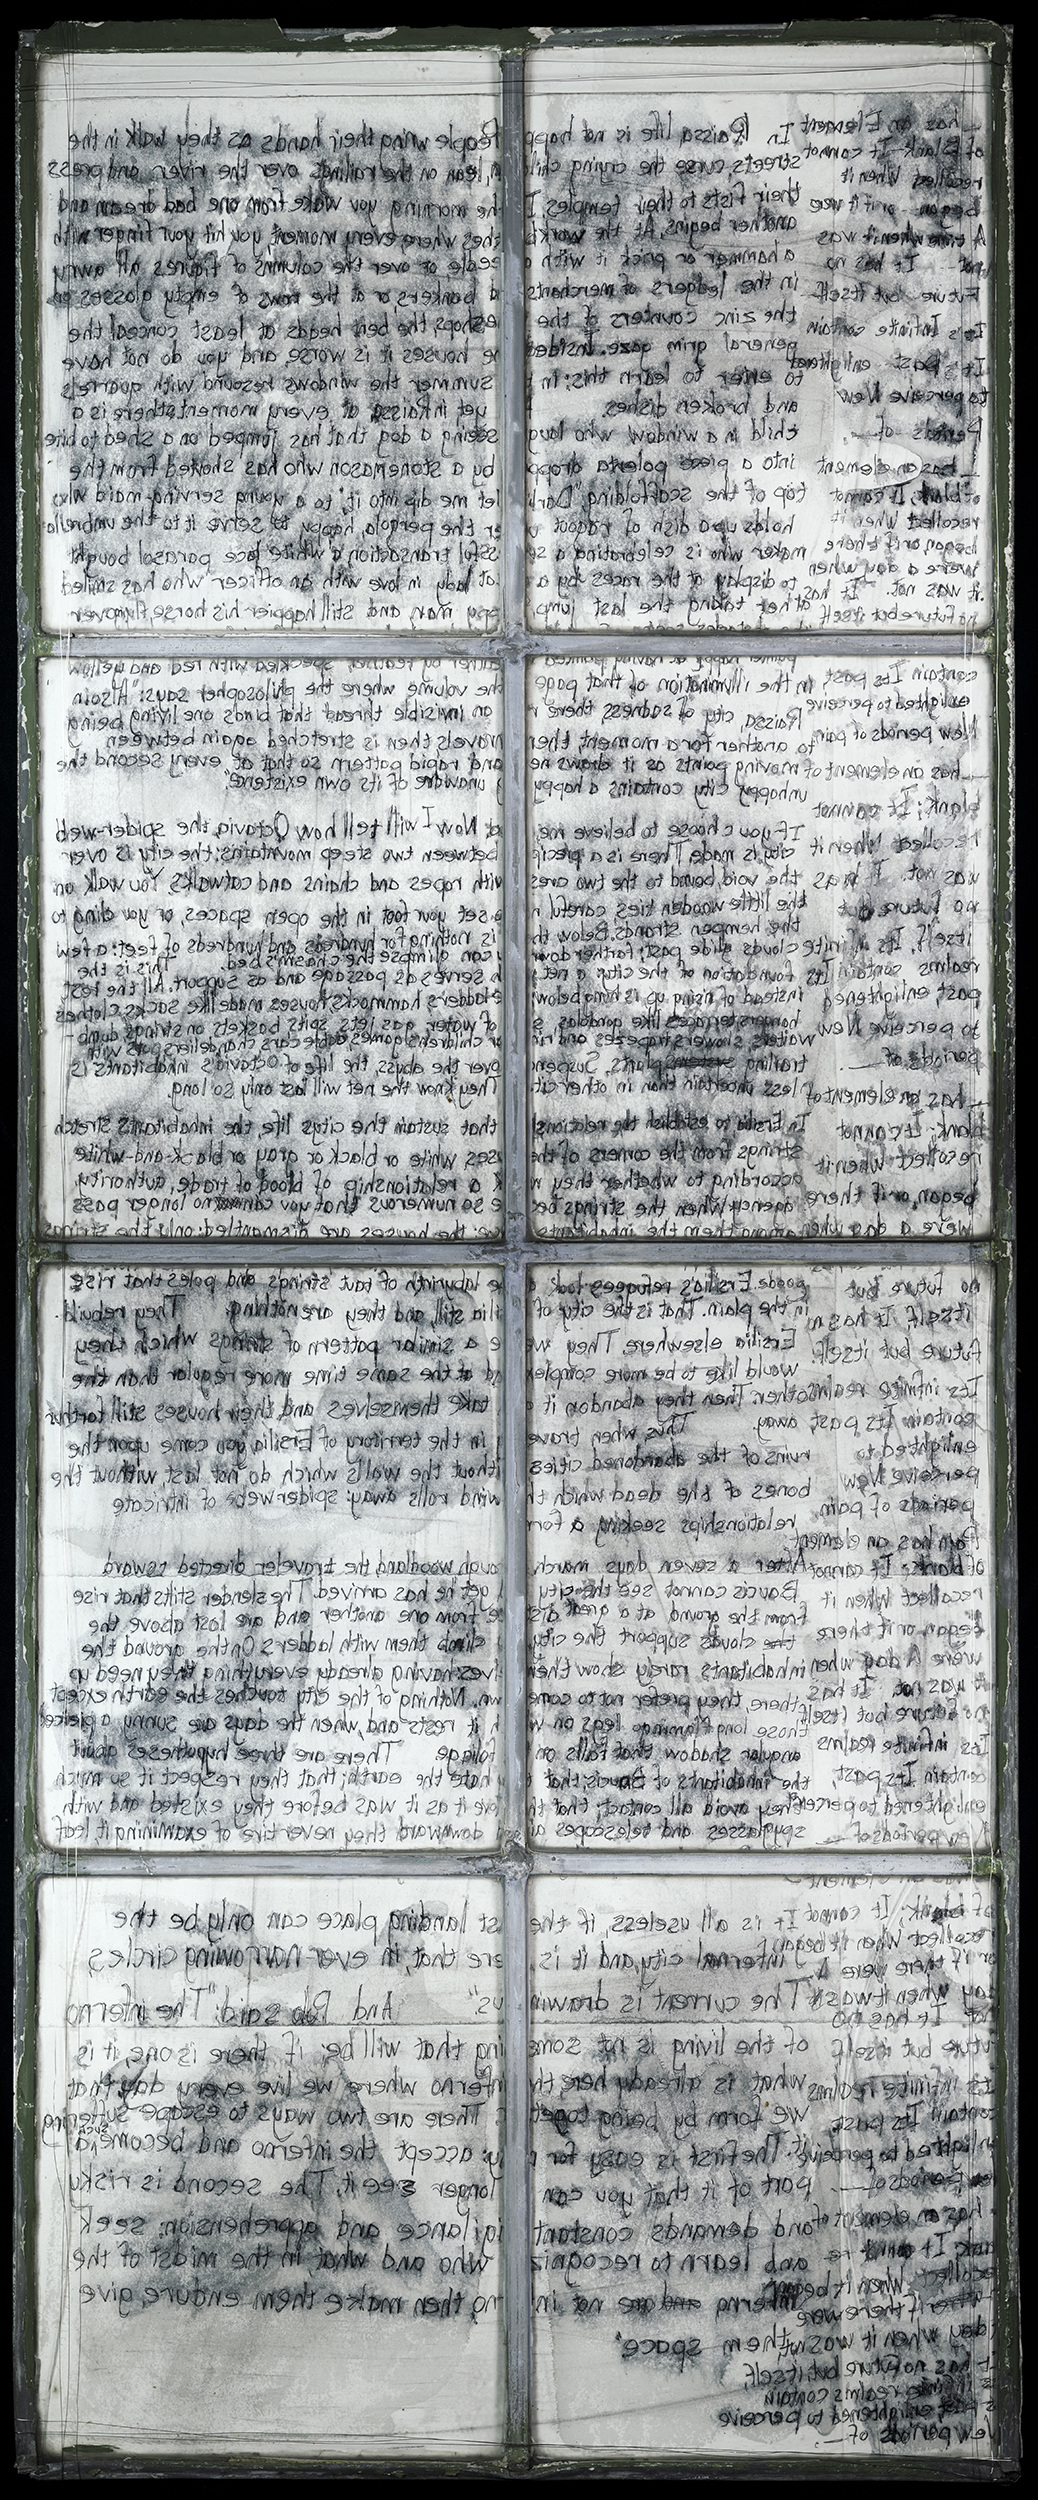 — has an Element
of Blank – It cannot
recollect When it
began – or if it were
A time when it was
not – It has no
Future but itself
It's Infinite contain
It's past – enlightened
to perceive New
Periods – of —.
— has an element
of blank; It cannot
recollect When it
began or if there
were a day when
it was not. It has
no future but itself
contain Its past,
enlighted to perceive
New periods of pain,
— has an element of
blank; It cannot
recollect When it
was not. It has
no future but
itself. Its infinite
realms contain Its
past, enlightened
to perceive New
periods of —.
— has an element of
blank; It cannot
recollect when it
began, or if there
were a day when
no future but
itself It has no
future but itself.
Its infinite realms
contain Its past
enlighted to
perceive New
periods of pain.
Pain has an element
of blank; It cannot
recollect When it
began or if there
were A day when
it was not. It has
no future but itself
Its infinite realms
contain Its past,
enlightened to perceive
New periods of —
of blank; It cannot
recollect When it began
or if there were A
day when it was
not It has no
future but itself
Its infinite realms
contain Its past
enlighted to perceive
New Periods of —.
— has an element of
blank; It cannot re-
collect When it began
or if there were
day when it was not
It has no future but itself,
Its infinite realms contain
Its past enlightened to perceive
New periods of —.
In Raissa, life is not happ People wring their hands as they walk in the
streets, curse the crying child lean on the railings over the river and press
their fists to their temples. I the morning you wake from one bad dream and
another begins. At the workb ches where, every moment, you hit your finger with
a hammer or prick it with a eedle or over the columns of figures all awry
in the ledgers of merchants d bankers, or at the rows of empty glasses on
the zinc counters of the eshops, the bent heads at least conceal the
general grim gaze. Inside the houses it is worse, and you do not have
to enter to learn this: in t summer the windows resound with quarrels
and broken dishes. yet in Raissa, at every moment, there is a
child in a window who laug seeing a dog that has jumped on a shed to bite
into a piece polenta dropp by a stonemason who has shouted from the
top of the scaffolding, "Darli let me dip into it," to a young serving-maid who
holds up a dish of ragout u er the pergola, happy to serve it to the umbrella
maker who is celebrating a se ssful transaction, a white lace parasol bought
to display at the races by a eat lady in love with an officer who has smiled
at her taking the last jump, ppy man, and still happier his horse, flying over
feather by feather, speckled with red and yellow
in the illumination of that page the volume where the philosopher says: "Also in
Raissa, city of sadness, there r an invisible thread that binds one living being
to another for a moment, then ravels then is stretched again between
moving points as it draws ne and rapid pattern so that at every second the
unhappy city contains a happy unaware of its own existence."
If you choose to believe me, Now I will tell how Octavia, the spider-web
city is made. There is a precip between two steep mountains: the city is over
the void bound to the two cres with ropes and chains and catwalks. You walk on
the little wooden ties careful n set your foot in the open spaces, or you cling to
the hempen strands. Below th is nothing for hundreds and hundreds of feet: a few
clouds glide past; farther down can glimpse the chasm's bed. This is the
foundation of the city: a net serves as passage and as support. All the rest
instead of rising up is hung below: ladders, hammocks, houses made like sacks, clothes
hangers, terraces like gondolas, s of water, gas jets, spits, baskets on strings, dumb-
waiters, showers, trapezes and rin or children's games, cable cars, chandeliers, pots with
trailing plants. Suspen over the abyss, the life of Octavia's inhabitants is
less uncertain than in other cit They know the net will last only so long.
In Ersilia to establish the relations that sustain the citys life, the inhabitants stretch
strings from the corners of the ses white or black or gray or black-and-white
according to whether they k a relationship of blood of trade, authority,
agency. When the strings bec e so numerous that you can no longer pass
among them the inhabitants ve: the houses are dismantled; only the strings
goods. Ersilia's refugees look e labyrinth of taut strings and poles that rise
in the plain. That is the city of ilia still, and they are nothing. They rebuild.
Ersilia elsewhere. They we e a similar pattern of strings which they
would like to be more complex nd at the same time more regular than the
other. Then they abandon it take themselves and their houses still farther
away. Thus when trave in the territory of Ersilia, you come upon the
ruins of the abandoned cities ithout the walls which do not last, without the
bones of the dead which th wind rolls away: spiderwebs of intricate
relationships seeking a for
After a seven days march ough woodland, the traveler directed toward
Baucis cannot see the city yet he has arrived. The slender stilts that rise
from the ground at a great dist e from one another and are lost above the
clouds support the city climb them with ladders. On the ground the
inhabitants rarely show them lves: having already everything they need up
there, they prefer not to come wn. Nothing of the city touches the earth except
those long flamingo legs on w h it rests and, when the days are sunny, a pierced
angular shadow that falls on foliage. There are three hypotheses about
the inhabitants of Baucis; that hate the earth; that they respect it so much
they avoid all contact; that th love it as it was before they existed and with
spyglasses and telescopes ai d downward they never tire of examining it, leaf
It is all useless, if the st landing place can only be the
infernal city, and it is ere that, in ever-narrowing circles,
The current is drawin us." And Polo said: "The inferno
of the living is not some ing that will be; if there is one, it is
what is already here th inferno where we live every day, that
we form by being toget There are two ways to escape suffering
it. The first is easy for y: accept the inferno and become such a
part of it that you can longer see it. The second is risky
and demands constant igilance and apprehension: seek
and learn to recogniz who and what, in the midst of the
inferno are not in no, then make them endure, give
them space"